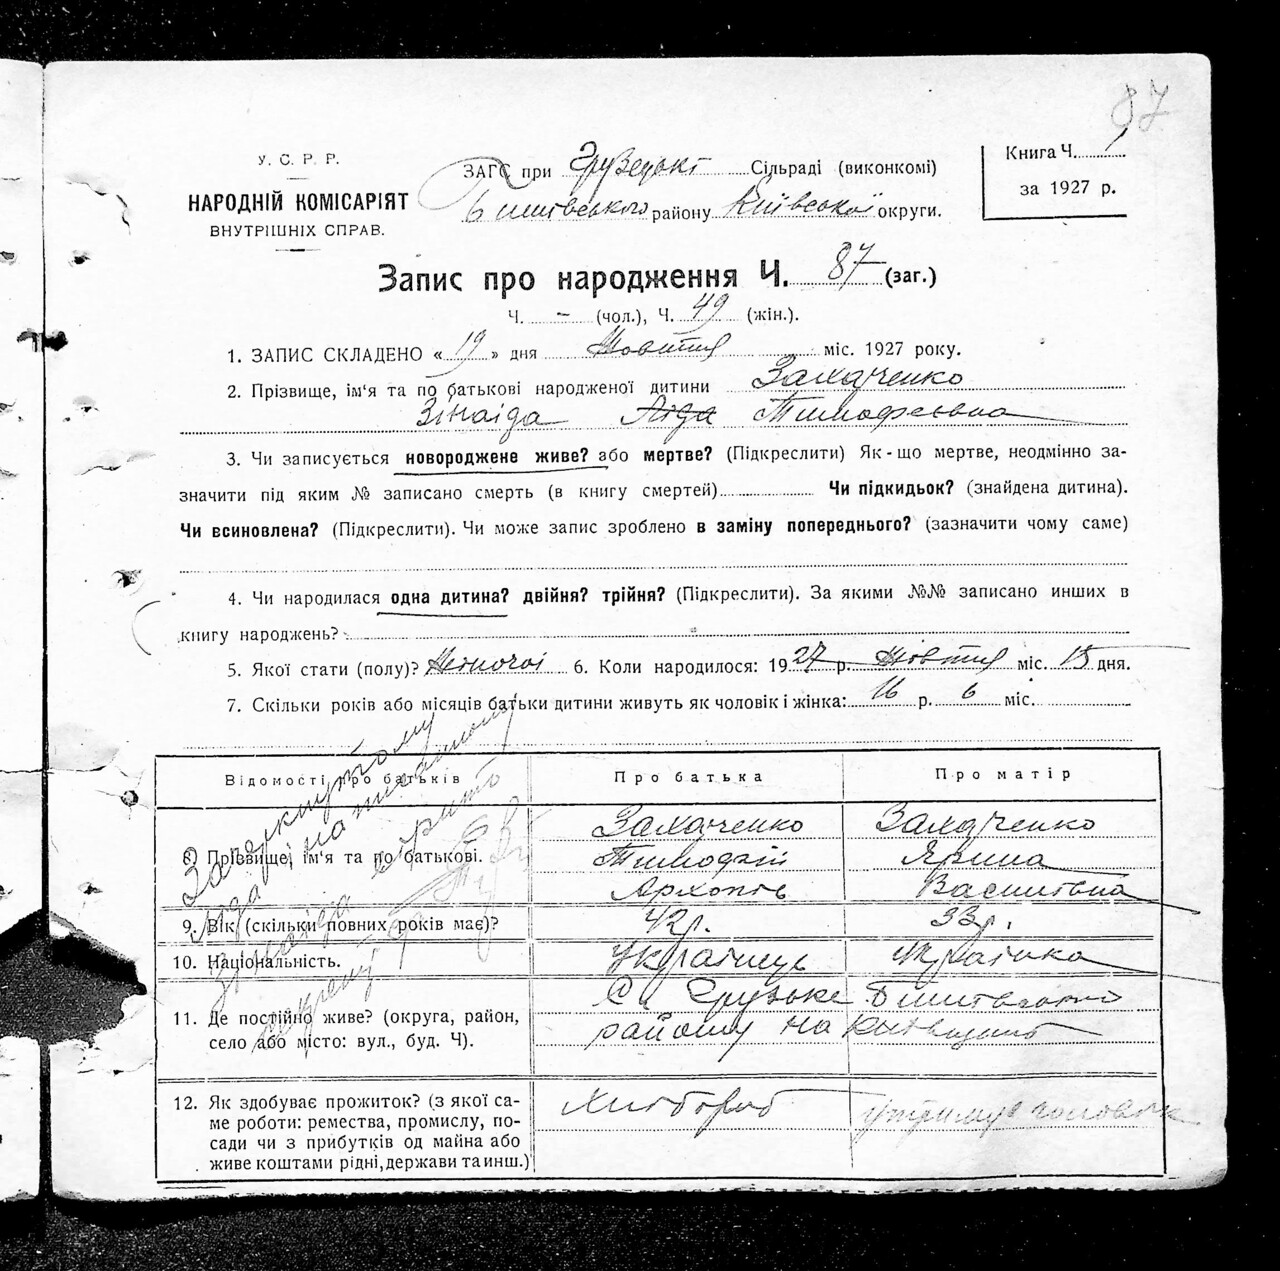 87
У. С. Р. Р.
НАРОДНІЙ КОМІСАРІЯТ
ВНУТРІШНІХ СПРАВ.
ЗАГС при Грузецькі Сільраді (виконкомі)
Бишівського району Київської округи.
Книга Ч. 1
за 1927 р.
Запис про народження Ч. 87 (заг.)
Ч. - (чол.), Ч. 49 (жін.).
1. ЗАПИС СКЛАДЕНО « 19 » дня Жовтня міс. 1927 року.
2. Прізвище, ім'я та по батькові народженої дитини Захарченко
Зінаіда Ліда Тимофеівна
3. Чи записується новороджене живе? або мертве? (Підкреслити) Як-що мертве, неодмінно за-
значити під яким № записано смерть (в книгу смертей) Чи підкидьок? (знайдена дитина).
Чи всиновлена? (Підкреслити). Чи може запис зроблено в заміну попереднього? (зазначити чому саме)
4. Чи народилася одна дитина? двійня? трійня? (Підкреслити). За якими №№ записано инших в
книгу народжень?
5. Якої стати (полу)? Жіночоі 6. Коли народилося: 1927 р. Жовтня міс. 15 дня.
7. Скільки років або місяців батьки дитини живуть як чоловік і жінка: 16 р. 6 міс.
Відомості про батьків Про батька Про матір
8. Прізвище, ім'я та по батькові. Захарченко Захарченко
Тимофій Ярина
Архопів Василівна
9. Вік (скільки повних років має)? 42 р. 33 р.
10. Національність. Українець Українка
11. Де постійно живе? (округа, район,
село або місто: вул., буд. Ч).
С. Грузьке Бишівського
району на Київщині
12. Як здобуває прожиток? (з якої са-
ме роботи: ремества, промислу, по-
сади чи з прибутків од майна або
живе коштами рідні, держави та инш.)
Хлібороб утримує чоловік
Закреслому
Ліда, написаному
Зінаіда